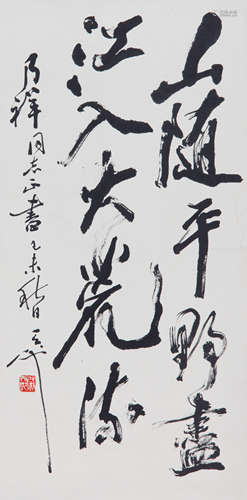 山随平野尽
江入大荒流
乃祥同志正书乙未秋日